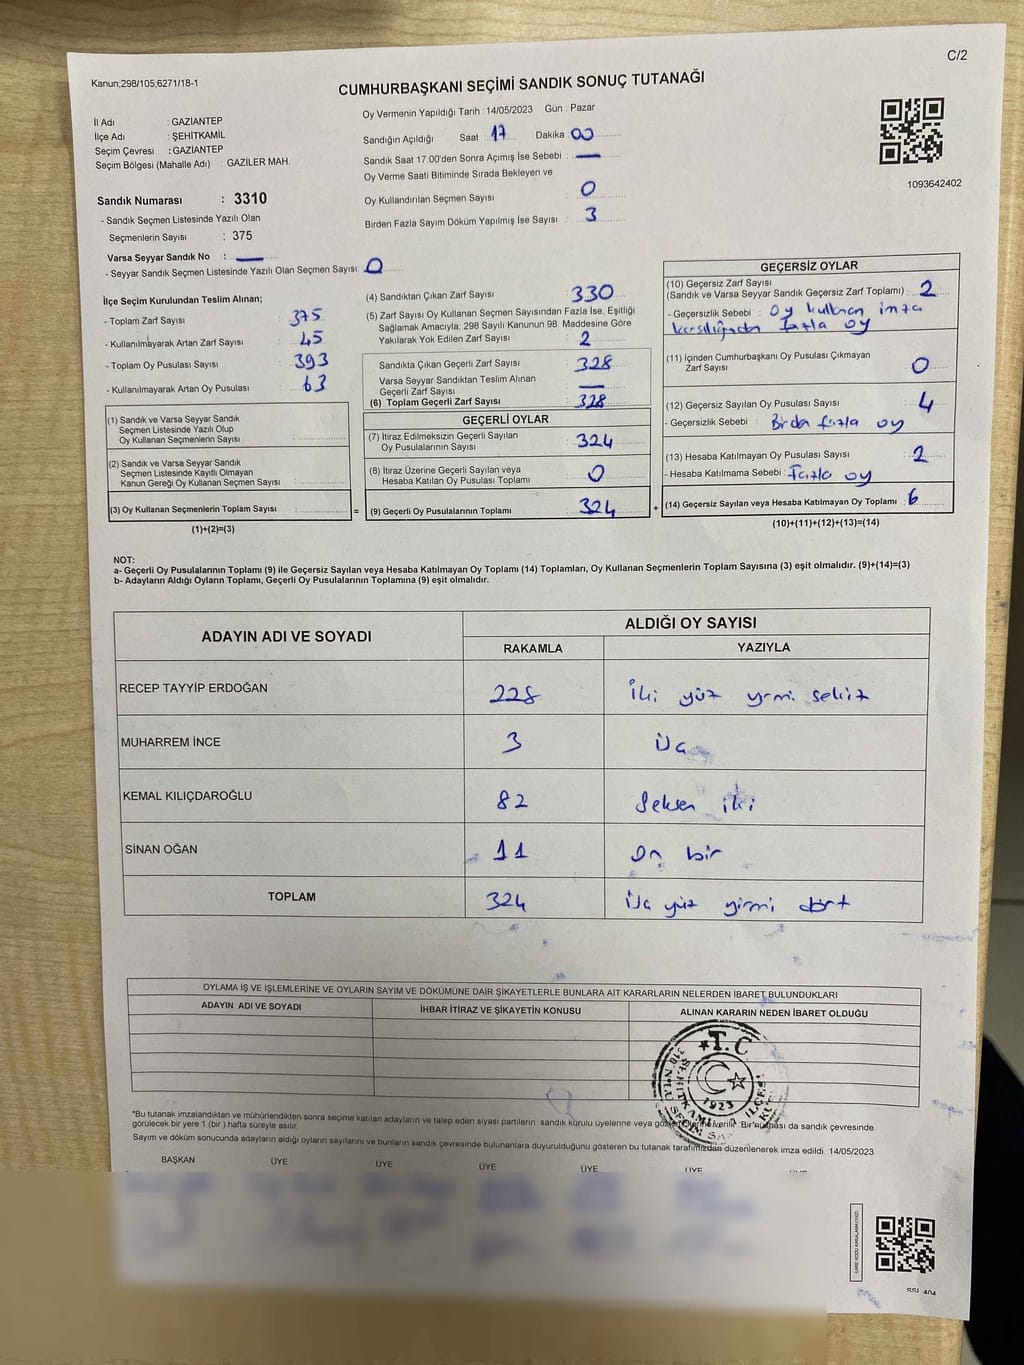 C/2
Kanun;298/105,6271/18-1
CUMHURBAŞKANI SEÇİMİ SANDIK SONUÇ TUTANAĞI
İl Adı : GAZİANTEP
İlçe Adı : ŞEHİTKAMİL
Seçim Çevresi : GAZİANTEP
Seçim Bölgesi (Mahalle Adı) : GAZİLER MAH.
Sandık Numarası : 3310
- Sandık Seçmen Listesinde Yazılı Olan
Seçmenlerin Sayısı : 375
Varsa Seyyar Sandık No : —
- Seyyar Sandık Seçmen Listesinde Yazılı Olan Seçmen Sayısı : 0
Oy Vermenin Yapıldığı Tarih : 14/05/2023 Gün : Pazar
Sandığın Açıldığı Saat : 17 Dakika : 00
Sandık Saat 17:00'den Sonra Açımış İse Sebebi : —
Oy Verme Saati Bitiminde Sırada Bekleyen ve
Oy Kullandırılan Seçmen Sayısı : 0
Birden Fazla Sayım Döküm Yapılmış İse Sayısı : 3
1093642402
İlçe Seçim Kurulundan Teslim Alınan;
- Toplam Zarf Sayısı : 375
- Kullanılmayarak Artan Zarf Sayısı : 45
- Toplam Oy Pusulası Sayısı : 393
- Kullanılmayarak Artan Oy Pusulası : 63
(1) Sandık ve Varsa Seyyar Sandık
Seçmen Listesinde Yazılı Olup
Oy Kullanan Seçmenlerin Sayısı :
(2) Sandık ve Varsa Seyyar Sandık
Seçmen Listesinde Kayıtlı Olmayan
Kanun Gereği Oy Kullanan Seçmen Sayısı :
(3) Oy Kullanan Seçmenlerin Toplam Sayısı :
(1)+(2)=(3)
(4) Sandıktan Çıkan Zarf Sayısı : 330
(5) Zarf Sayısı Oy Kullanan Seçmen Sayısından Fazla İse, Eşitliği
Sağlamak Amacıyla, 298 Sayılı Kanunun 98. Maddesine Göre
Yakılarak Yok Edilen Zarf Sayısı : 2
Sandıkta Çıkan Geçerli Zarf Sayısı : 328
Varsa Seyyar Sandıktan Teslim Alınan
Geçerli Zarf Sayısı : —
(6) Toplam Geçerli Zarf Sayısı : 328
GEÇERLİ OYLAR
(7) İtiraz Edilmeksizin Geçerli Sayılan
Oy Pusulalarının Sayısı : 324
(8) İtiraz Üzerine Geçerli Sayılan veya
Hesaba Katılan Oy Pusulası Toplamı : 0
= (9) Geçerli Oy Pusulalarının Toplamı : 324 +
GEÇERSİZ OYLAR
(10) Geçersiz Zarf Sayısı
(Sandık ve Varsa Seyyar Sandık Geçersiz Zarf Toplamı) : 2
- Geçersizlik Sebebi : Oy kullanan imza
karşılığından fazla oy
(11) İçinden Cumhurbaşkanı Oy Pusulası Çıkmayan
Zarf Sayısı : 0
(12) Geçersiz Sayılan Oy Pusulası Sayısı : 4
- Geçersizlik Sebebi : Birda fazla oy
(13) Hesaba Katılmayan Oy Pusulası Sayısı : 2
- Hesaba Katılmama Sebebi : Fazla oy
(14) Geçersiz Sayılan veya Hesaba Katılmayan Oy Toplamı : 6
(10)+(11)+(12)+(13)=(14)
NOT:
a- Geçerli Oy Pusulalarının Toplamı (9) ile Geçersiz Sayılan veya Hesaba Katılmayan Oy Toplamı (14) Toplamları, Oy Kullanan Seçmenlerin Toplam Sayısına (3) eşit olmalıdır. (9)+(14)=(3)
b- Adayların Aldığı Oyların Toplamı, Geçerli Oy Pusulalarının Toplamına (9) eşit olmalıdır.
ADAYIN ADI VE SOYADI
ALDIĞI OY SAYISI
RAKAMLA YAZIYLA
RECEP TAYYİP ERDOĞAN 228 İki yüz yrmi sekiz
MUHARREM İNCE 3 üç
KEMAL KILIÇDAROĞLU 82 Seksen iki
SİNAN OĞAN 11 On bir
TOPLAM 324 üç yüz yirmi dört
OYLAMA İŞ VE İŞLEMLERİNE VE OYLARIN SAYIM VE DÖKÜMÜNE DAİR ŞİKAYETLERLE BUNLARA AİT KARARLARIN NELERDEN İBARET BULUNDUKLARI
ADAYIN ADI VE SOYADI İHBAR İTİRAZ VE ŞİKAYETİN KONUSU ALINAN KARARIN NEDEN İBARET OLDUĞU
T.C
1923
*Bu tutanak imzalandıktan ve mühürlendikten sonra seçime katılan adayların ve talep eden siyasi partilerin sandık kurulu üyelerine veya verilir. Bir da sandık çevresinde
görülecek bir yere 1 (bir ) hafta süreyle asılır.
Sayım ve döküm sonucunda adayların aldığı oyların sayılarını ve bunların sandık çevresinde bulunanlara duyurulduğunu gösteren bu tutanak tarafımızdan düzenlenerek imza edildi. 14/05/2023
BAŞKAN ÜYE ÜYE ÜYE ÜYE ÜYE